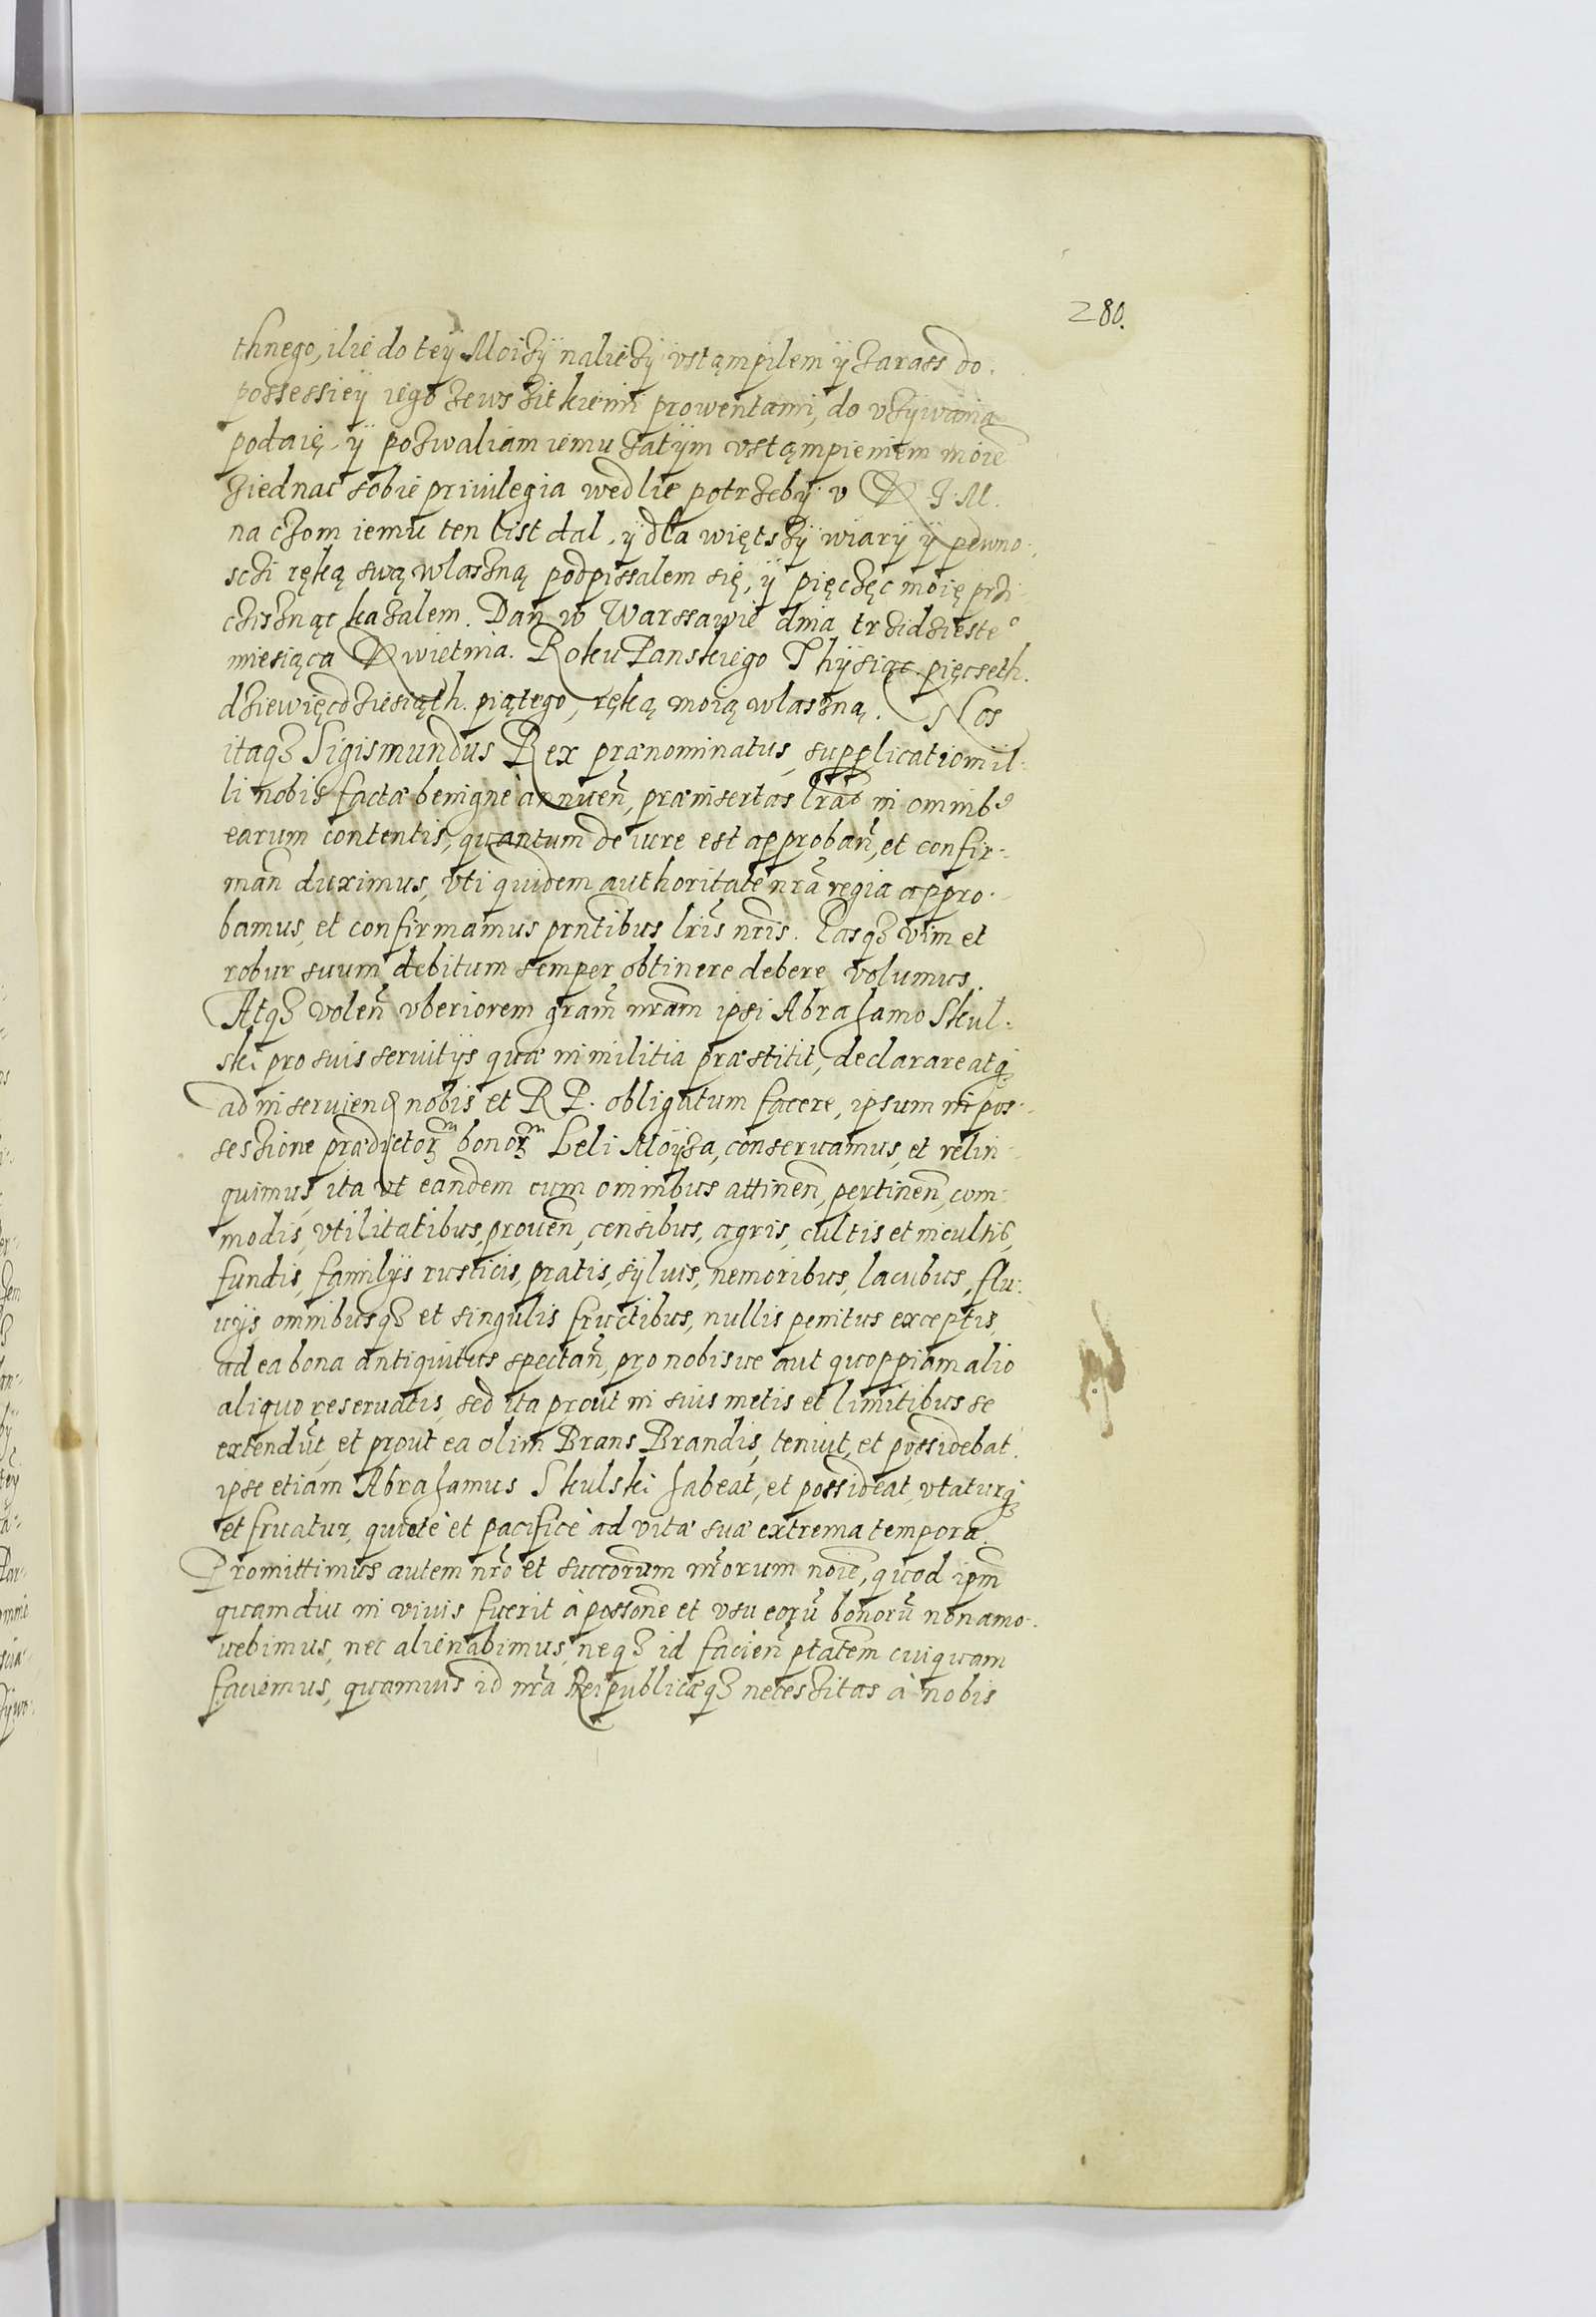 280.
thnego, ilie do teÿ Moizÿ nalieżÿ vstąmpilem ÿ zarass do
possessieÿ iego zewszitkiemi prowentami, do vzÿwania
podaię ÿ pozwaliam iemu zatÿm vstąmpieniem moiē
ziednac sobie priuilegia wedlie potrzebÿ v K J. M.
na czom iemu ten list dal, ÿ dla więtszÿ wiarÿ ÿ pewno-
sczi ręką swą wlaszną podpissalem się, ÿ pięczęc moię przi
czisznąc kazalem. Dan w Warssawie dnia trzidzieste°
miesiąca Kwietnia. Roku Panskiego Thÿsiąc pięcseth.
dziewięcdziesiąth. piątego, ręką moią wlaszną. Nos
itaqȝ Sigismundus Rex prænominatus, supplicationi il-
li nobis factæ benignè annuen̄, præinsertas lrās in omnibꝰ
earum contentis, quantum de iure est approban̄, et confir-
man̄ duximus, vti quidem authoritate nrā regia appro-
bamus, et confirmamus prntibus lrīs nrīs. Easqȝ vim et
robur suum debitum semper obtinere debere volumus.
Atqȝ volen̄ vberiorem gram̄ nram̄ ipsi Abrahamo Skul-
ski pro suis seruitijs quæ in militia præstitit, declarare atqȝ
ad inseruiend nobis et R P. obligatum facere, ipsum in pos-
sessione prædictoꝝ bonoꝝ Leli Moÿza, conseruamus, et relin-
quimus, ita vt eandem cum omnibus attinen̄, pertinen̄, com-
modis, vtilitatibus, prouen̄, censibus, agris, cultis et incultis,
fundis, familijs rusticis, pratis, sÿluis, nemoribus, lacubus, flu-
uijs omnibusqȝ et singulis fructibus, nullis penitus exceptis,
ad ea bona antiquitus spectan̄, pro nobisue aut quoppiam alio
aliquo reseruatis, sed ita prout in suis metis et limitibus se
extendūt, et prout ea olim Brans Brandis, tenuit, et possidebat.
ipse etiam Abrahamus Skulski habeat, et possideat, vtaturqȝ
et fruatur, quietè et pacificè ad vitæ suæ extrema tempora.
Promittimus autem nrō et succorum nrorum noīe, quod ipm̄
quamdiu in viuis fuerit à possone et vsu eorū bonorū non amo-
uebimus, nec alienabimus, neqȝ id facien̄ ptatem cuiquam
faciemus, quamuis id nrā Reipublicæqȝ necessitas à nobis